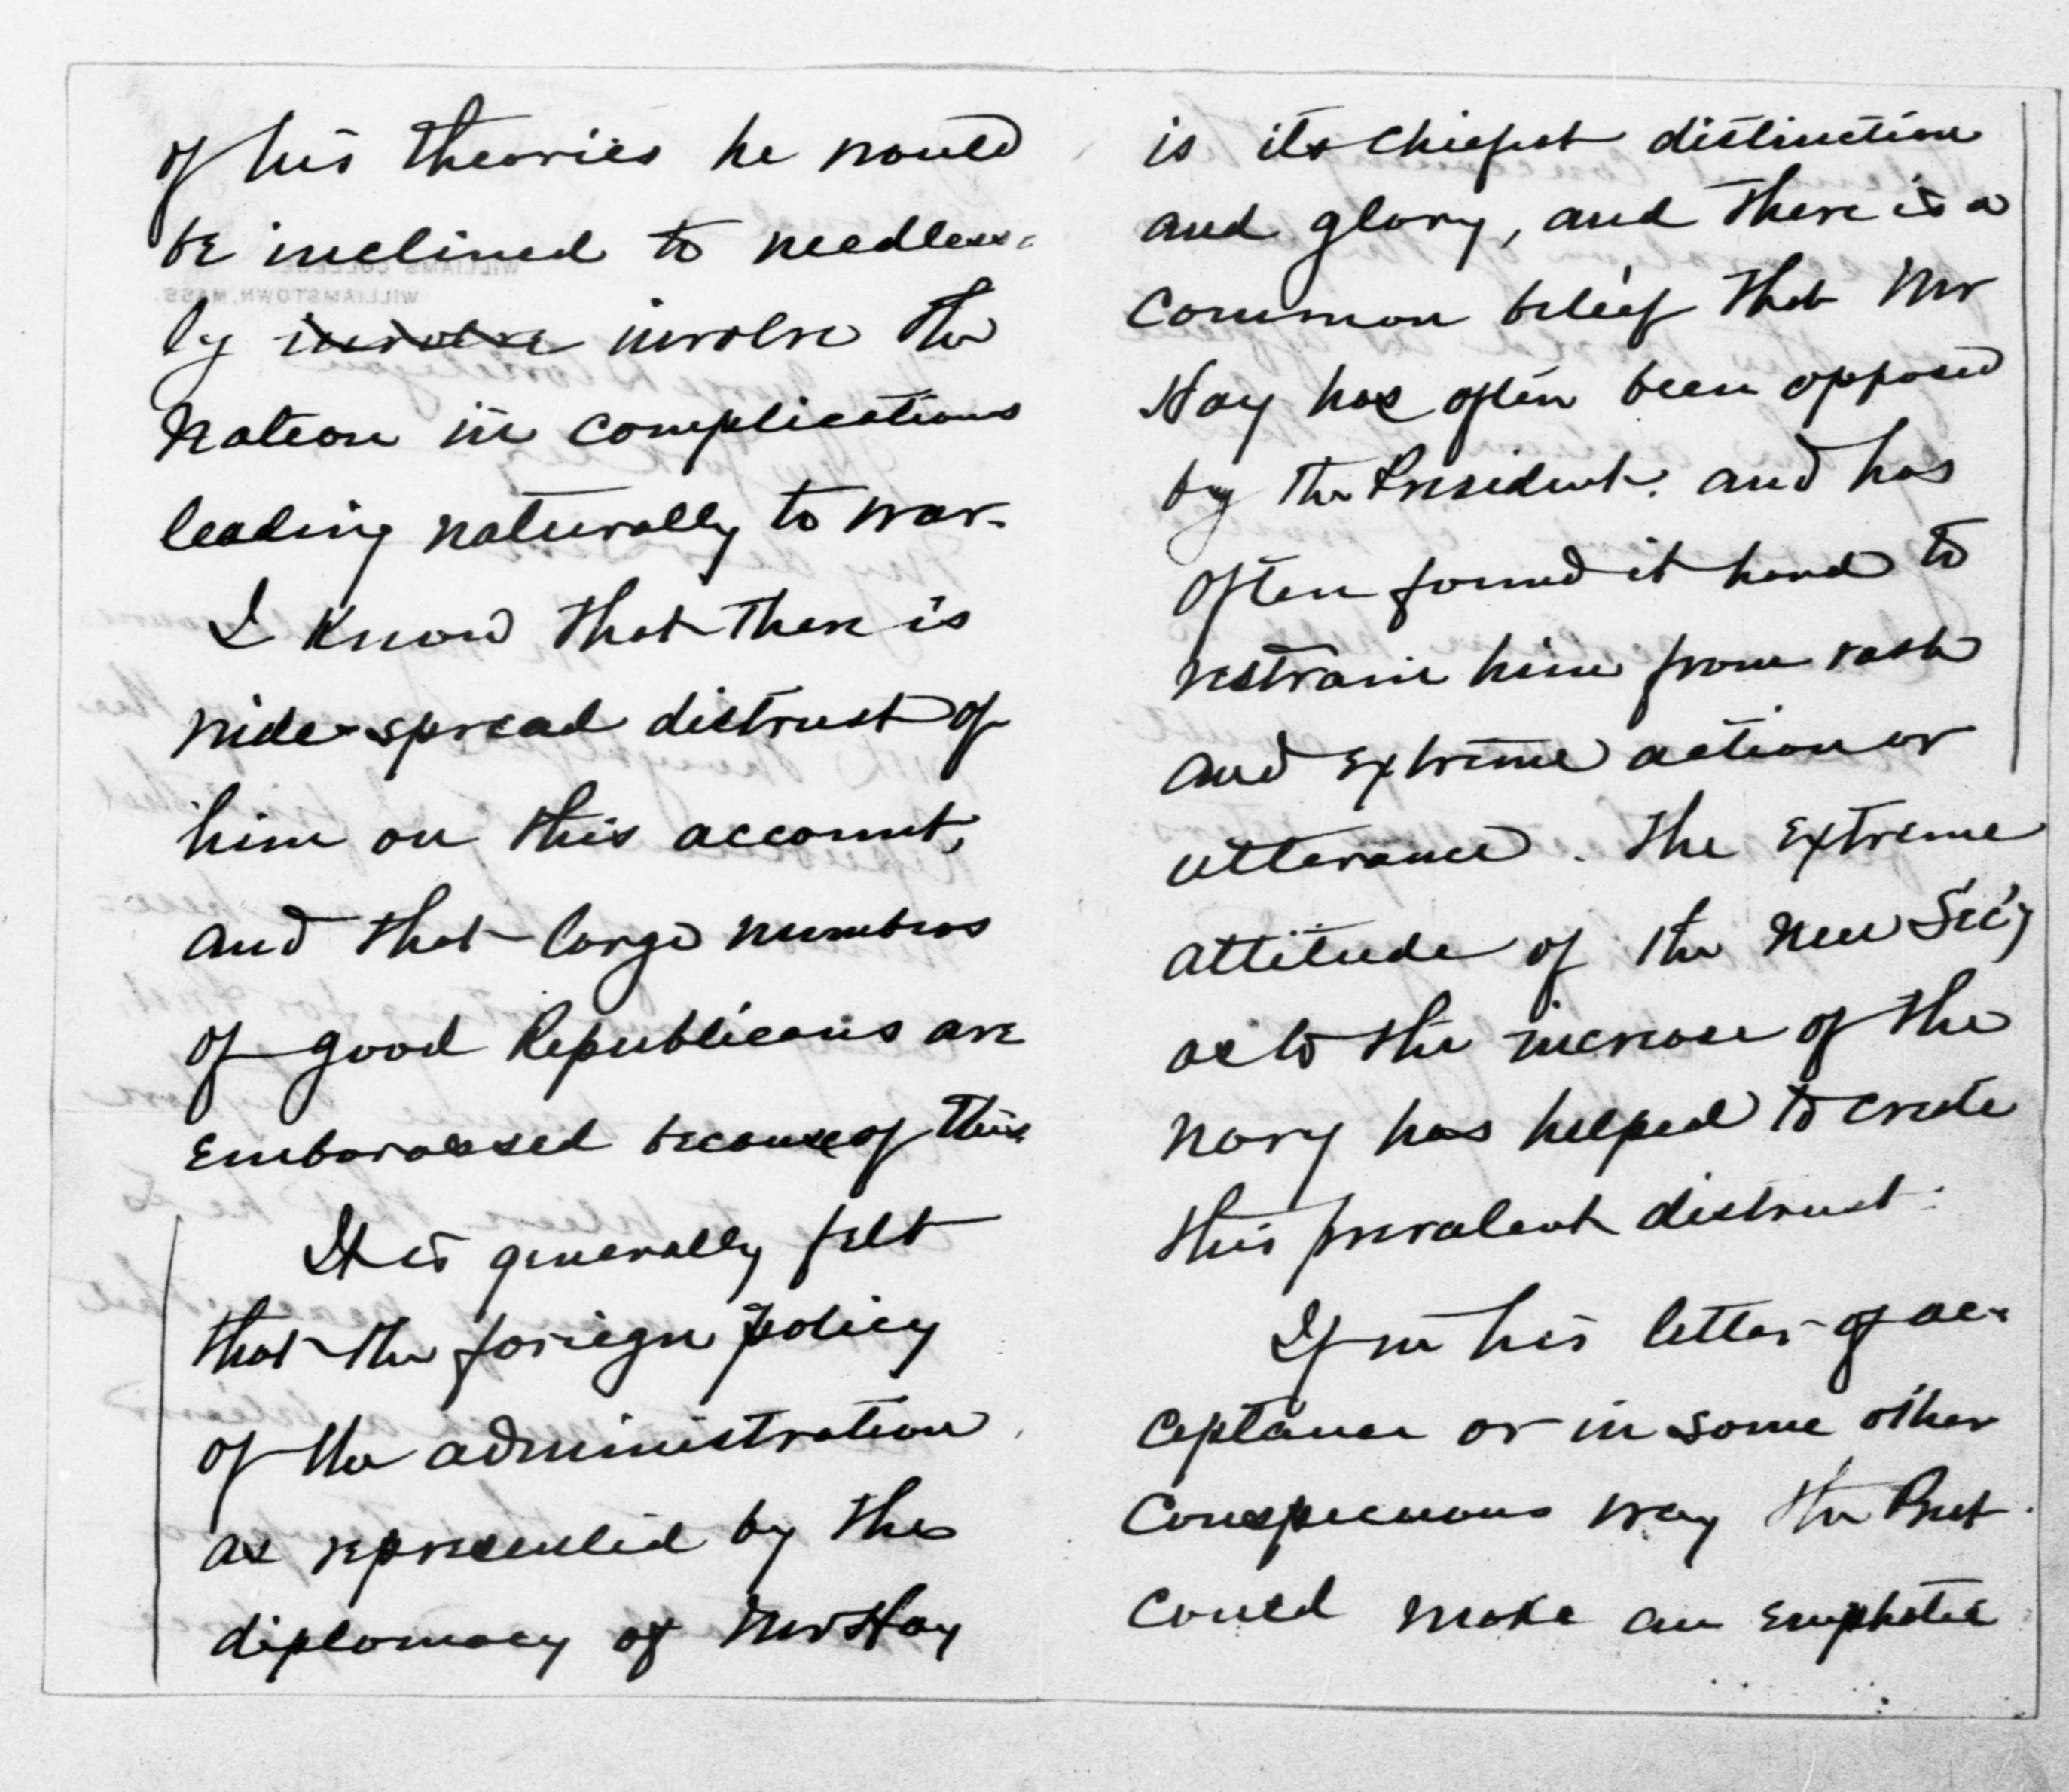 of his theories he would
be inclined to needless-
ly involve involve the
nation in complications
leading naturally to war.
I know that there is
wide-spread distrust of
him on this account,
and that large numbers
of good Republicans are
embarassed because of this
It is generally felt
that the foriegn policy
of the administration
as represented by the
diplomacy of Mr Hay
is its chiefest distinction
and glory, and there is a
common belief that Mr
Hay has often been opposed
by the President. and has
often found it hard to
restrain him from rash
and extreme action or
utterance. The extreme
attitude of the new Sec'y
as to the increase of the
navy has helped to create
this prevalent distrust.
If in his letter of ac-
ceptance or in some other
conspicuous way the Prest
could make an emphatic
WILLIAMS COLLEGE
WILLIAMSTOWN, MASS.